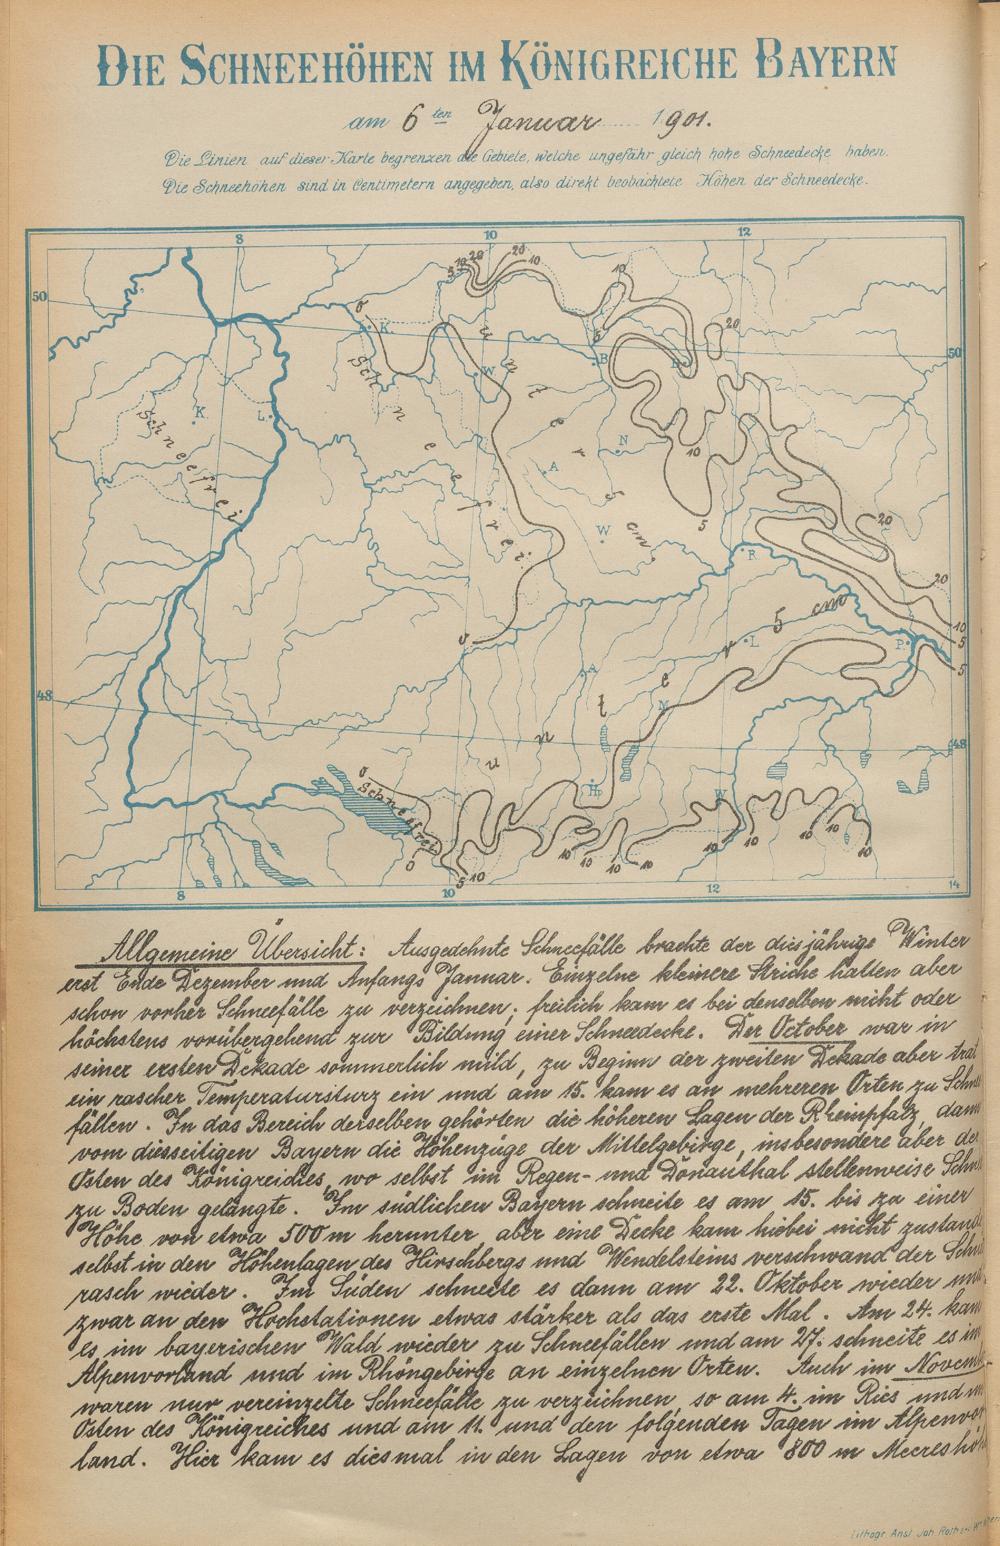 DIE SCHNEEHÖHEN IM KÖNIGREICHE BAYERN
am 6ten Januar 1901.
Die Linien auf dieser Karte begrenzen die Gebiete, welche ungefähr gleich hohe Schneedecke haben.
Die Schneehöhen sind in Centimetern angegeben, also direkt beobachtete Höhen der Schneedecke.
8 10 12
50
5 10 20 20 10 10
0 K. 20
50
unter 5 cm
Schneefrei
Schneefrei
K L W B N A W
10 5 20
R
20
unter 5 cm
0 L P 10 5 5
A M
48
48
H W
0 Schneefrei 0
5 10 10 10 10 10 10 10 10 10 10
8 10 12 14
Allgemeine Übersicht: Ausgedehnte Schneefälle brachte der diesjährige Winter
erst Ende Dezember und Anfangs Januar. Einzelne kleinere Striche hatten aber
schon vorher Schneefälle zu verzeichnen; freilich kam es bei denselben nicht oder
höchstens vorübergehend zur Bildung einer Schneedecke. Der October war in
seiner ersten Dekade sommerlich mild, zu Beginn der zweiten Dekade aber trat
ein rascher Temperatursturz ein und am 15. kam es an mehreren Orten zu Schnee
fällen. In das Bereich derselben gehörten die höheren Lagen der Rheinpfalz, dann
vom diesseitigen Bayern die Höhenzüge der Mittelgebirge, insbesondere aber der
Osten des Königreiches, wo selbst im Regen- und Donauthal stellenweise Schnee
zu Boden gelangte. Im südlichen Bayern schneite es am 15. bis zu einer
Höhe von etwa 500 m herunter, aber eine Decke kam hiebei nicht zustande
selbst in den Höhenlagen des Hirschbergs und Wendelsteins verschwand der Schnee
rasch wieder. Im Süden schneite es dann am 22. Oktober wieder und
zwar an den Hochstationen etwas stärker als das erste Mal. Am 24. kam
es im bayerischen Wald wieder zu Schneefällen und am 27. schneite es im
Alpenvorland und im Rhöngebirge an einzelnen Orten. Auch im November
waren nur vereinzelte Schneefälle zu verzeichnen, so am 4. im Ries und im
Osten des Königreiches und am 11. und den folgenden Tagen im Alpenvor
land. Hier kam es diesmal in den Lagen von etwa 800 m Meereshöhe
Lithogr. Anst. Joh. Roth